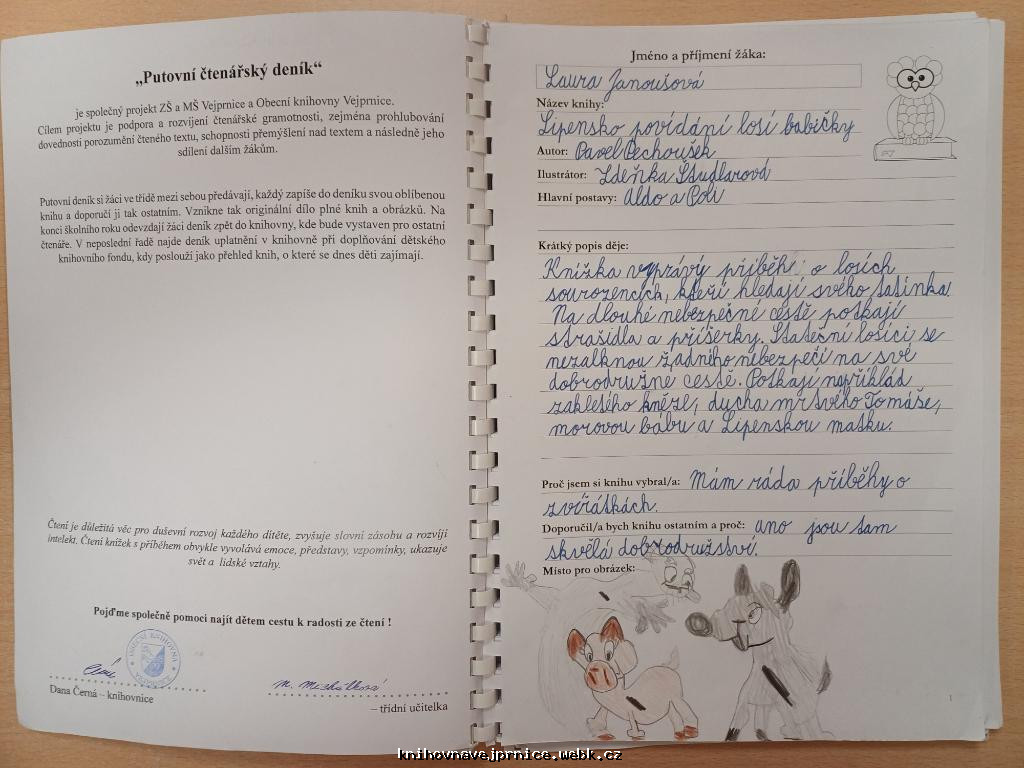 „Putovní čtenářský deník“
je společný projekt ZŠ a MŠ Vejprnice a Obecní knihovny Vejprnice.
Cílem projektu je podpora a rozvíjení čtenářské gramotnosti, zejména prohlubování
dovednosti porozumění čteného textu, schopnosti přemýšlení nad textem a následně jeho
sdílení dalším žákům.
Putovní deník si žáci ve třídě mezi sebou předávají, každý zapíše do deníku svou oblíbenou
knihu a doporučí ji tak ostatním. Vznikne tak originální dílo plné knih a obrázků. Na
konci školního roku odevzdají žáci deník zpět do knihovny, kde bude vystaven pro ostatní
čtenáře. V neposlední řadě najde deník uplatnění v knihovně při doplňování dětského
knihovního fondu, kdy poslouží jako přehled knih, o které se dnes děti zajímají.
Čtení je důležitá věc pro duševní rozvoj každého dítěte, zvyšuje slovní zásobu a rozvíjí
intelekt. Čtení knížek s příběhem obvykle vyvolává emoce, představy, vzpomínky, ukazuje
svět a lidské vztahy.
Pojďme společně pomoci najít dětem cestu k radosti ze čtení !
OBECNÍ KNIHOVNA
Dana Černá – knihovnice
– třídní učitelka
Jméno a příjmení žáka:
Laura Janoušová
Název knihy:
Lipensko povídání losí babičky
Autor: Pavel Pechoušek
Ilustrátor: Zdeňka Študlarová
Hlavní postavy: Aldo a Poli
Krátký popis děje:
Knížka vyprávý příběh o losích
sourozencích, kteří hledají svého tatínka.
Na dlouhé nebezpečné cestě potkají
strašidla a příšerky. Stateční losíci se
nezalknou žadního nebezpečí na své
dobrodružné cestě. Potkají například
zakletého kněze, ducha mrtvého Tomáše,
morovou bábu a Lipenskou matku.
Proč jsem si knihu vybral/a: Mám ráda příběhy o
zvířátkách.
Doporučil/a bych knihu ostatním a proč: ano jsou tam
skvělá dobrodružství.
Místo pro obrázek:
knihovnavejprnice.webk.cz